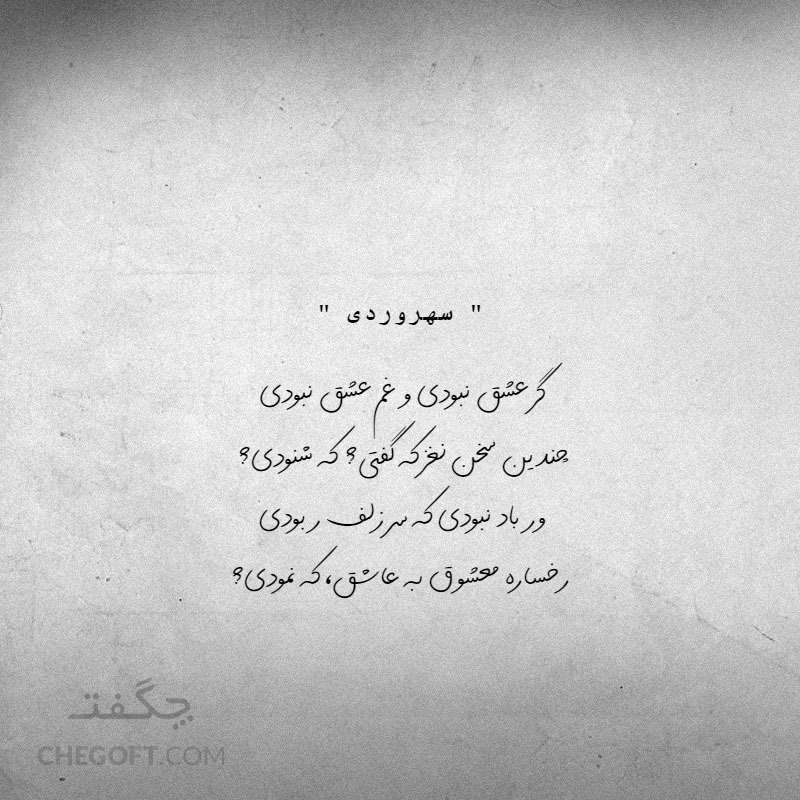 " سهروردی "
گر عشق نبودی و غم عشق نبودی
چندین سخن نغز که گفتی؟ که شنودی؟
ور باد نبودی که سر زلف ربودی
رخساره معشوق به عاشق، که نمودی؟
چگفت
CHEGOFT.COM